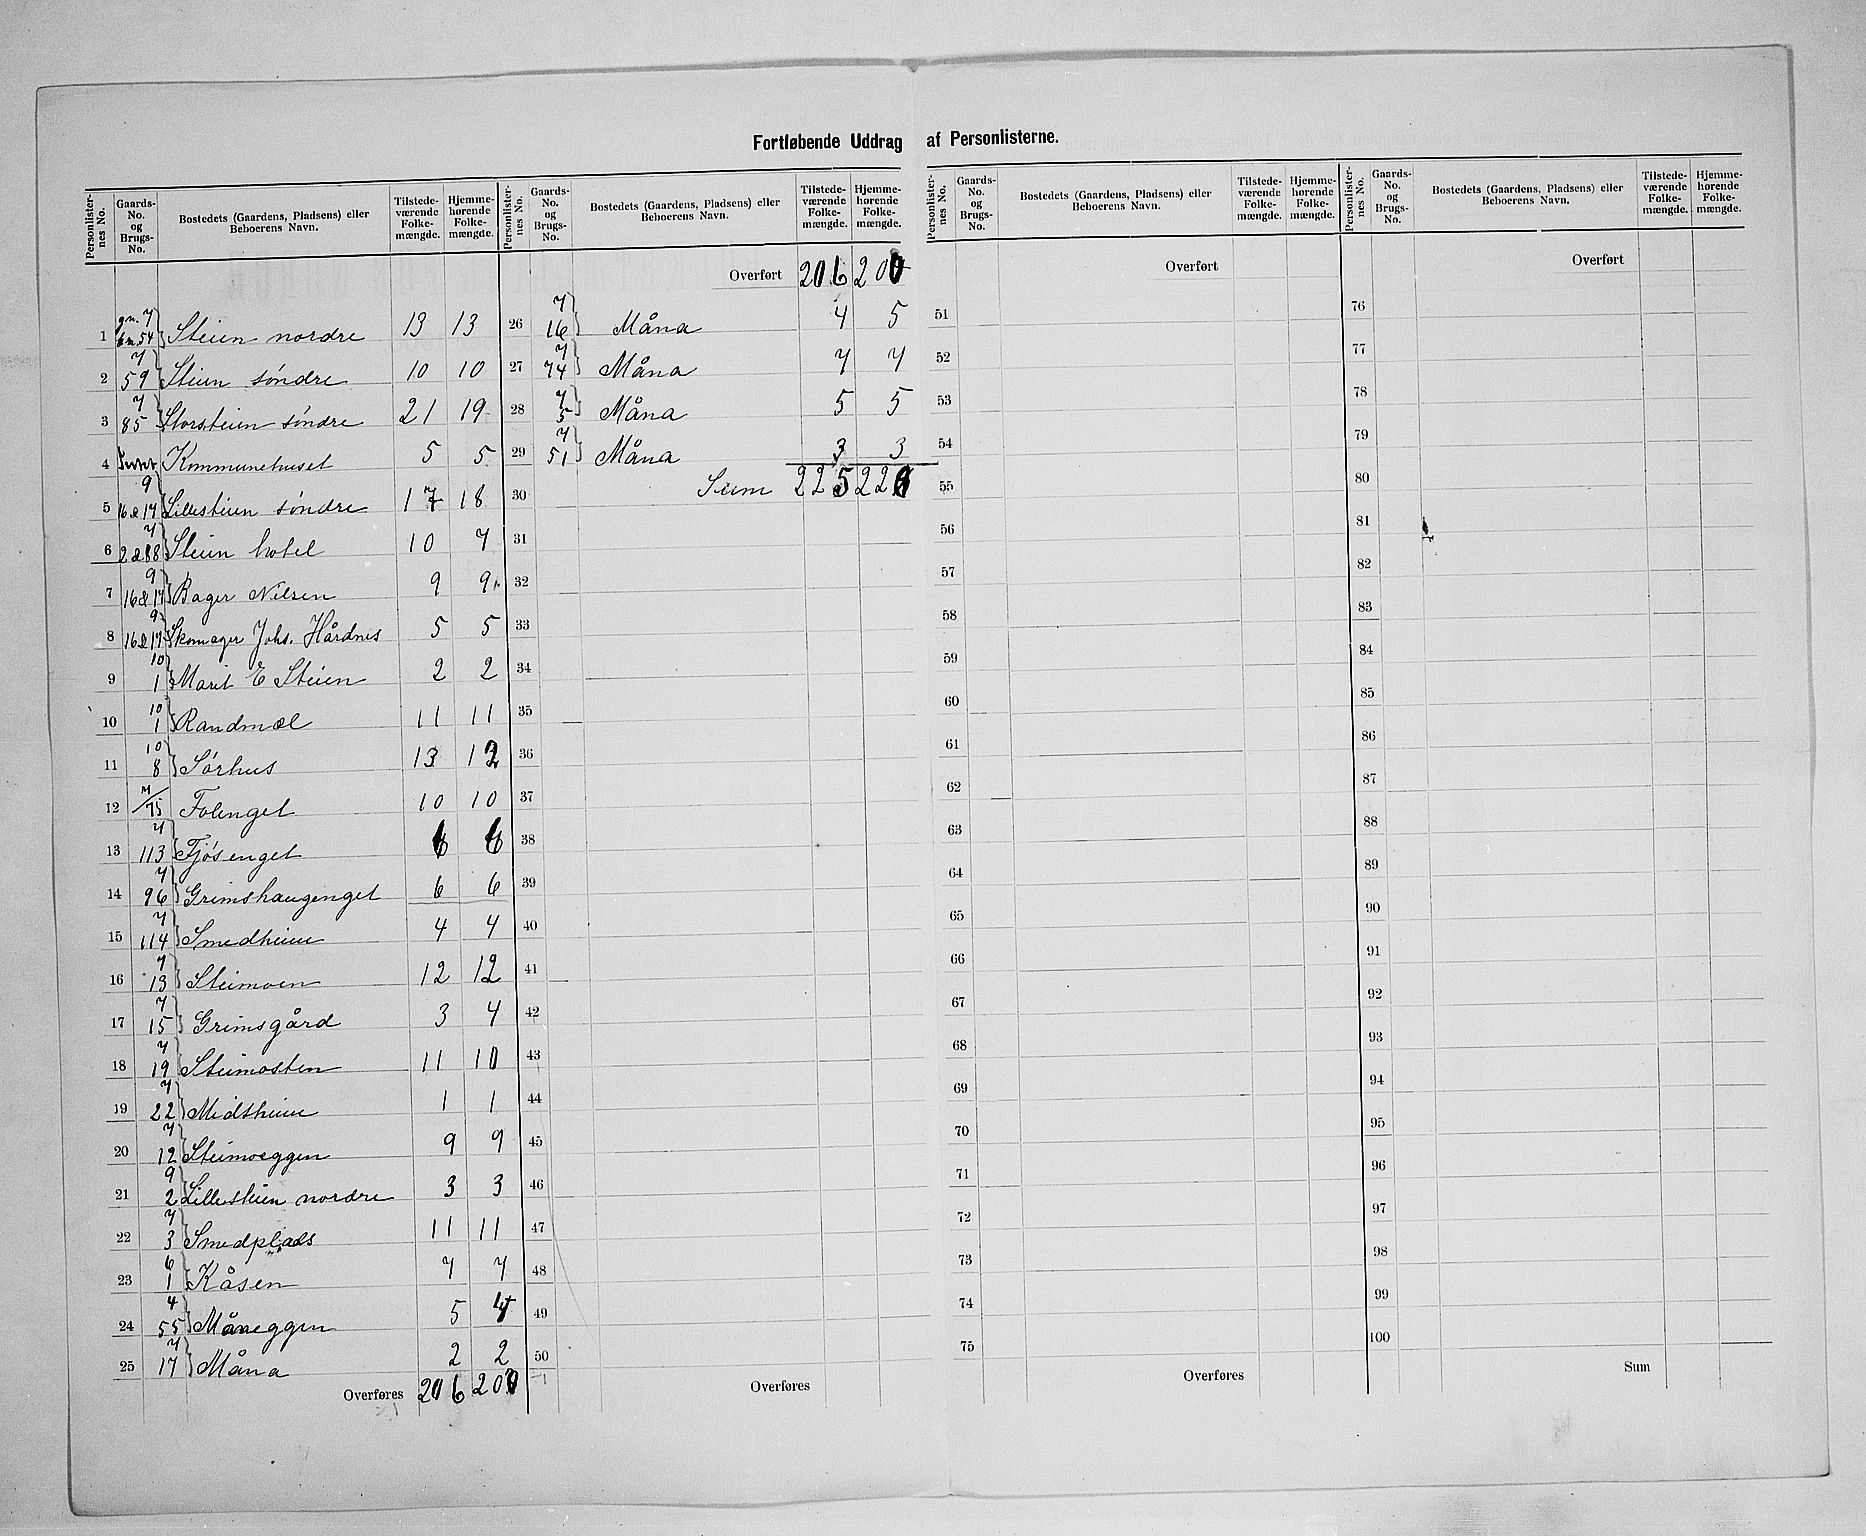 Fortløbende Uddrag af Personlisterne.
Personlister-nes No. Gaards-No. og Brugs-No. Bostedets (Gaardens, Pladsens) eller Beboerens Navn. Tilstede-værende Folke-mængde. Hjemme-hørende Folke-mængde.
1 gn. 7 bn. 54 Steien nordre 13 13
2 7 59 Steien søndre 10 10
3 7 85 Storsteien søndre 21 19
4 Kommunehuset 5 5
5 9 16 & 17 Lillesteien søndre 17 18
6 7 2 & 88 Steien hotel 10 7
7 9 16 & 17 Bager Nilsen 9 9
8 9 16 & 17 Skomager Johs. Hårdnes 5 5
9 10 1 Marit E Steien 2 2
10 10 1 Randmæl 11 11
11 10 8 Sørhus 13 12
12 7/75 Folenget 10 10
13 7 113 Fjøsenget 6 6
14 7 96 Grimshaugenget 6 6
15 7 114 Smedheim 4 4
16 7 13 Steimoen 12 12
17 7 15 Grimsgård 3 4
18 7 19 Steimosten 11 10
19 7 22 Midtheim 1 1
20 7 12 Steimoeggen 9 9
21 9 2 Lillesteien nordre 3 3
22 7 3 Smedplads 11 11
23 6 1 Kåsen 7 7
24 4 55 Måneggen 5 4
25 7 17 Måna 2 2
Overføres 206 200
Personlister-nes No. Gaards-No. og Brugs-No. Bostedets (Gaardens, Pladsens) eller Beboerens Navn. Tilstede-værende Folke-mængde. Hjemme-hørende Folke-mængde.
Overført 206 200
26 7 16 Måna 4 5
27 7 74 Måna 7 7
28 7 5 Måna 5 5
29 7 51 Måna 3 3
30 Sum 225 220
31
32
33
34
35
36
37
38
39
40
41
42
43
44
45
46
47
48
49
50
Overføres
Personlister-nes No. Gaards-No. og Brugs-No. Bostedets (Gaardens, Pladsens) eller Beboerens Navn. Tilstede-værende Folke-mængde. Hjemme-hørende Folke-mængde.
Overført
51
52
53
54
55
56
57
58
59
60
61
62
63
64
65
66
67
68
69
70
71
72
73
74
75
Overføres
Personlister-nes No. Gaards-No. og Brugs-No. Bostedets (Gaardens, Pladsens) eller Beboerens Navn. Tilstede-værende Folke-mængde. Hjemme-hørende Folke-mængde.
Overført
76
77
78
79
80
81
82
83
84
85
86
87
88
89
90
91
92
93
94
95
96
97
98
99
100
Sum